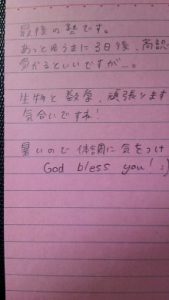 最後の塾です。
あっとゆうまに3日後、
気がるといいですが…。
生物と数学、頑張ります
気合いですね!
暑いので体調に気をつけ
God bless you! :)